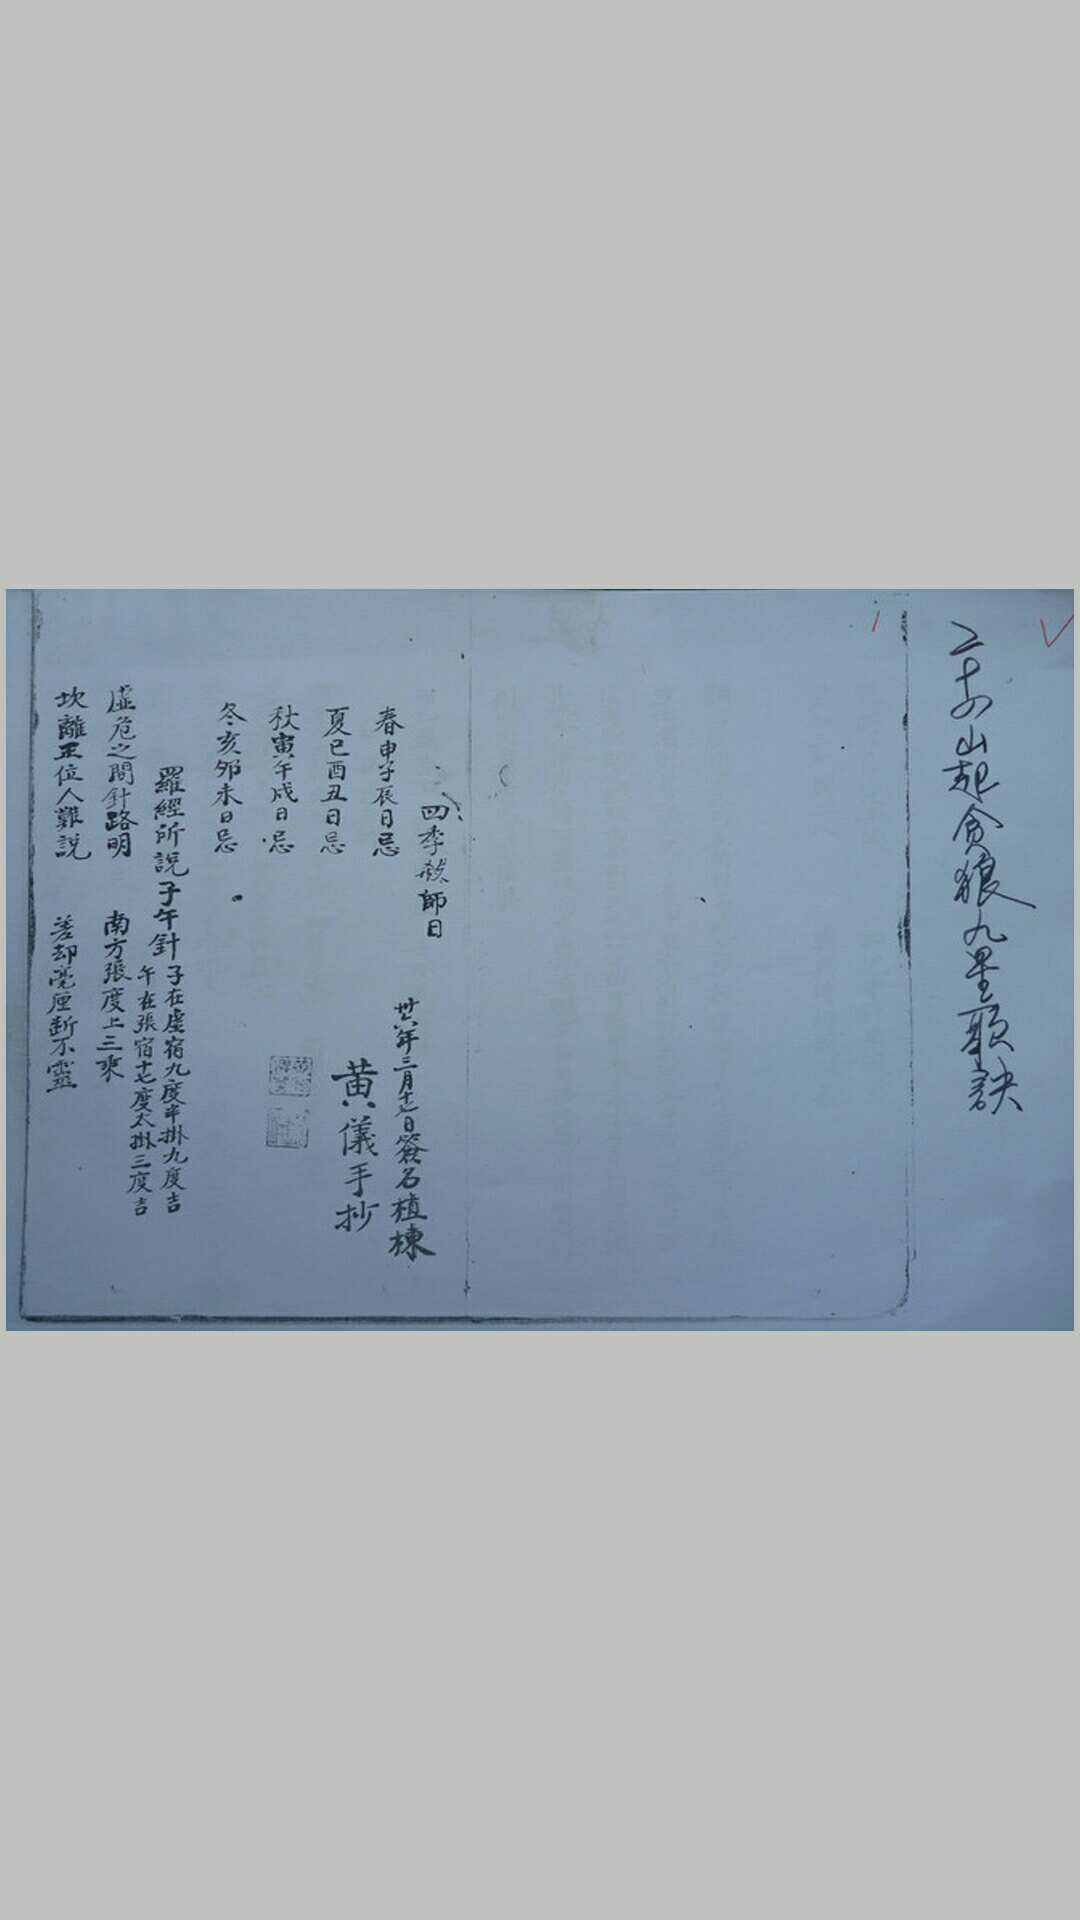 二十四山起貪狼九星歌訣
四季殺師日
春申子辰日忌
夏巳酉丑日忌
秋寅午戌日忌
冬亥卯未日忌
廿八年三月十七日簽名植棟
黄儀手抄
羅經所說子午針
子在虛宿九度半掛九度吉
午在張宿十七度太掛三度吉
虛危之間針路明 南方張度上三乘
坎離正位人難說 差却毫厘斷不靈